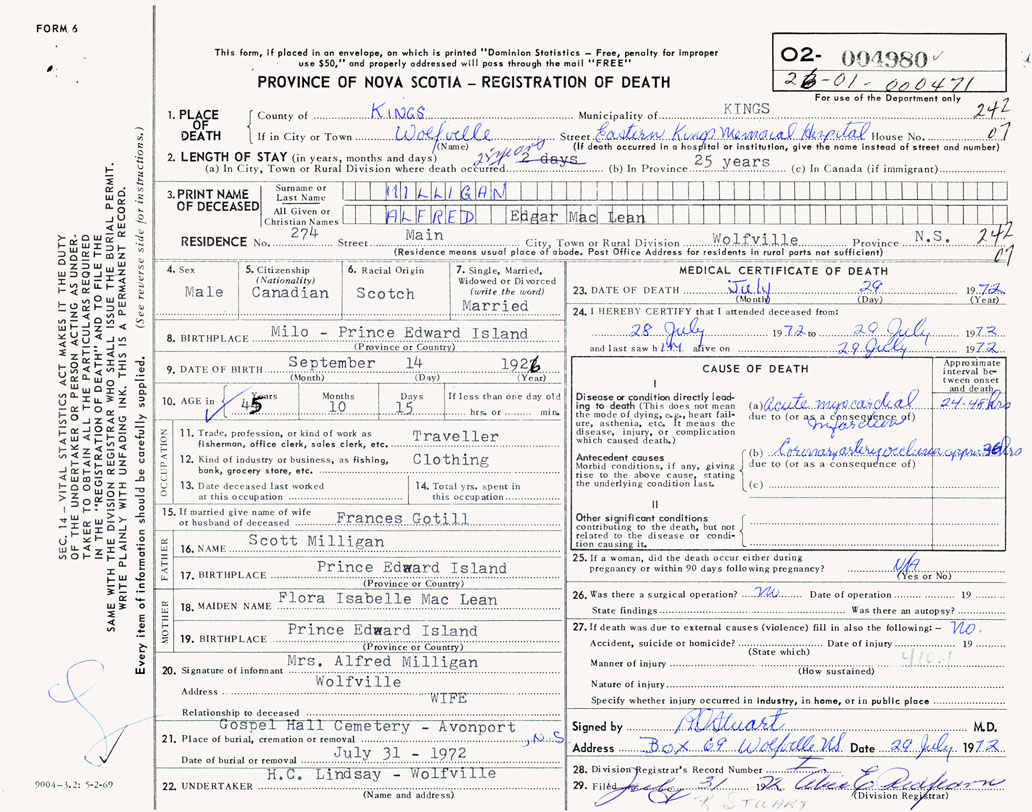 FORM 6
This form, if placed in an envelope, on which is printed "Dominion Statistics – Free, penalty for improper
use $50," and properly addressed will pass through the mail "FREE"
PROVINCE OF NOVA SCOTIA – REGISTRATION OF DEATH
02- 004980
26-01-000471
For use of the Department only
1. PLACE OF DEATH
County of KINGS Municipality of KINGS 242
If in City or Town Wolfville Street Eastern Kings Memorial Hospital House No. 07
(Name) (If death occurred in a hospital or institution, give the name instead of street and number)
2. LENGTH OF STAY (in years, months and days) 25 years 2 days
(a) In City, Town or Rural Division where death occurred (b) In Province 25 years (c) In Canada (if immigrant)
3. PRINT NAME OF DECEASED
Surname or Last Name MILLIGAN
All Given or Christian Names ALFRED Edgar Mac Lean
RESIDENCE No. 274 Street Main City, Town or Rural Division Wolfville Province N.S. 242
(Residence means usual place of abode. Post Office Address for residents in rural parts not sufficient) 07
4. Sex Male
5. Citizenship (Nationality) Canadian
6. Racial Origin Scotch
7. Single, Married, Widowed or Divorced (write the word) Married
8. BIRTHPLACE Milo - Prince Edward Island
(Province or Country)
9. DATE OF BIRTH September 14 1926
(Month) (Day) (Year)
10. AGE in Years 45 Months 10 Days 15 If less than one day old hrs. or min.
OCCUPATION
11. Trade, profession, or kind of work as fisherman, office clerk, sales clerk, etc. Traveller
12. Kind of industry or business, as fishing, bank, grocery store, etc. Clothing
13. Date deceased last worked at this occupation
14. Total yrs. spent in this occupation
15. If married give name of wife or husband of deceased Frances Gotill
FATHER
16. NAME Scott Milligan
17. BIRTHPLACE Prince Edward Island
(Province or Country)
MOTHER
18. MAIDEN NAME Flora Isabelle Mac Lean
19. BIRTHPLACE Prince Edward Island
(Province or Country)
20. Signature of informant Mrs. Alfred Milligan
Address Wolfville
Relationship to deceased WIFE
21. Place of burial, cremation or removal Gospel Hall Cemetery - Avonport, N.S
Date of burial or removal July 31 - 1972
22. UNDERTAKER H.C. Lindsay - Wolfville
(Name and address)
MEDICAL CERTIFICATE OF DEATH
23. DATE OF DEATH July 29 1972
(Month) (Day) (Year)
24. I HEREBY CERTIFY that I attended deceased from:
28 July 1972 to 29 July 1972
and last saw him alive on 29 July 1972
CAUSE OF DEATH
Approximate interval between onset and death
I
Disease or condition directly leading to death (This does not mean the mode of dying, e.g., heart failure, asthenia, etc. It means the disease, injury, or complication which caused death.)
(a) Acute myocardial infarction 24-48 hrs
due to (or as a consequence of)
Antecedent causes
Morbid conditions, if any, giving rise to the above cause, stating the underlying condition last.
(b) Coronary artery occlusion approx 36 hrs
due to (or as a consequence of)
(c)
II
Other significant conditions contributing to the death, but not related to the disease or condition causing it.
25. If a woman, did the death occur either during pregnancy or within 90 days following pregnancy? N/A
(Yes or No)
26. Was there a surgical operation? no Date of operation 19
State findings Was there an autopsy?
27. If death was due to external causes (violence) fill in also the following: – No.
Accident, suicide or homicide? Date of injury 19
(State which)
Manner of injury
(How sustained)
Nature of injury
Specify whether injury occurred in industry, in home, or in public place
Signed by R D Stuart M.D.
Address Box 69 Wolfville NS Date 29 July 1972
28. Division Registrar's Record Number
29. Filed July 31 1972
(Division Registrar)
R. STUART
SEC. 14 – VITAL STATISTICS ACT MAKES IT THE DUTY
OF THE UNDERTAKER OR PERSON ACTING AS UNDER-
TAKER TO OBTAIN ALL THE PARTICULARS REQUIRED
IN THE "REGISTRATION OF DEATH" AND TO FILE THE
SAME WITH THE DIVISION REGISTRAR WHO SHALL ISSUE THE BURIAL PERMIT.
WRITE PLAINLY WITH UNFADING INK. THIS IS A PERMANENT RECORD.
Every item of information should be carefully supplied. (See reverse side for instructions.)
9004–3.2: 5-2-69